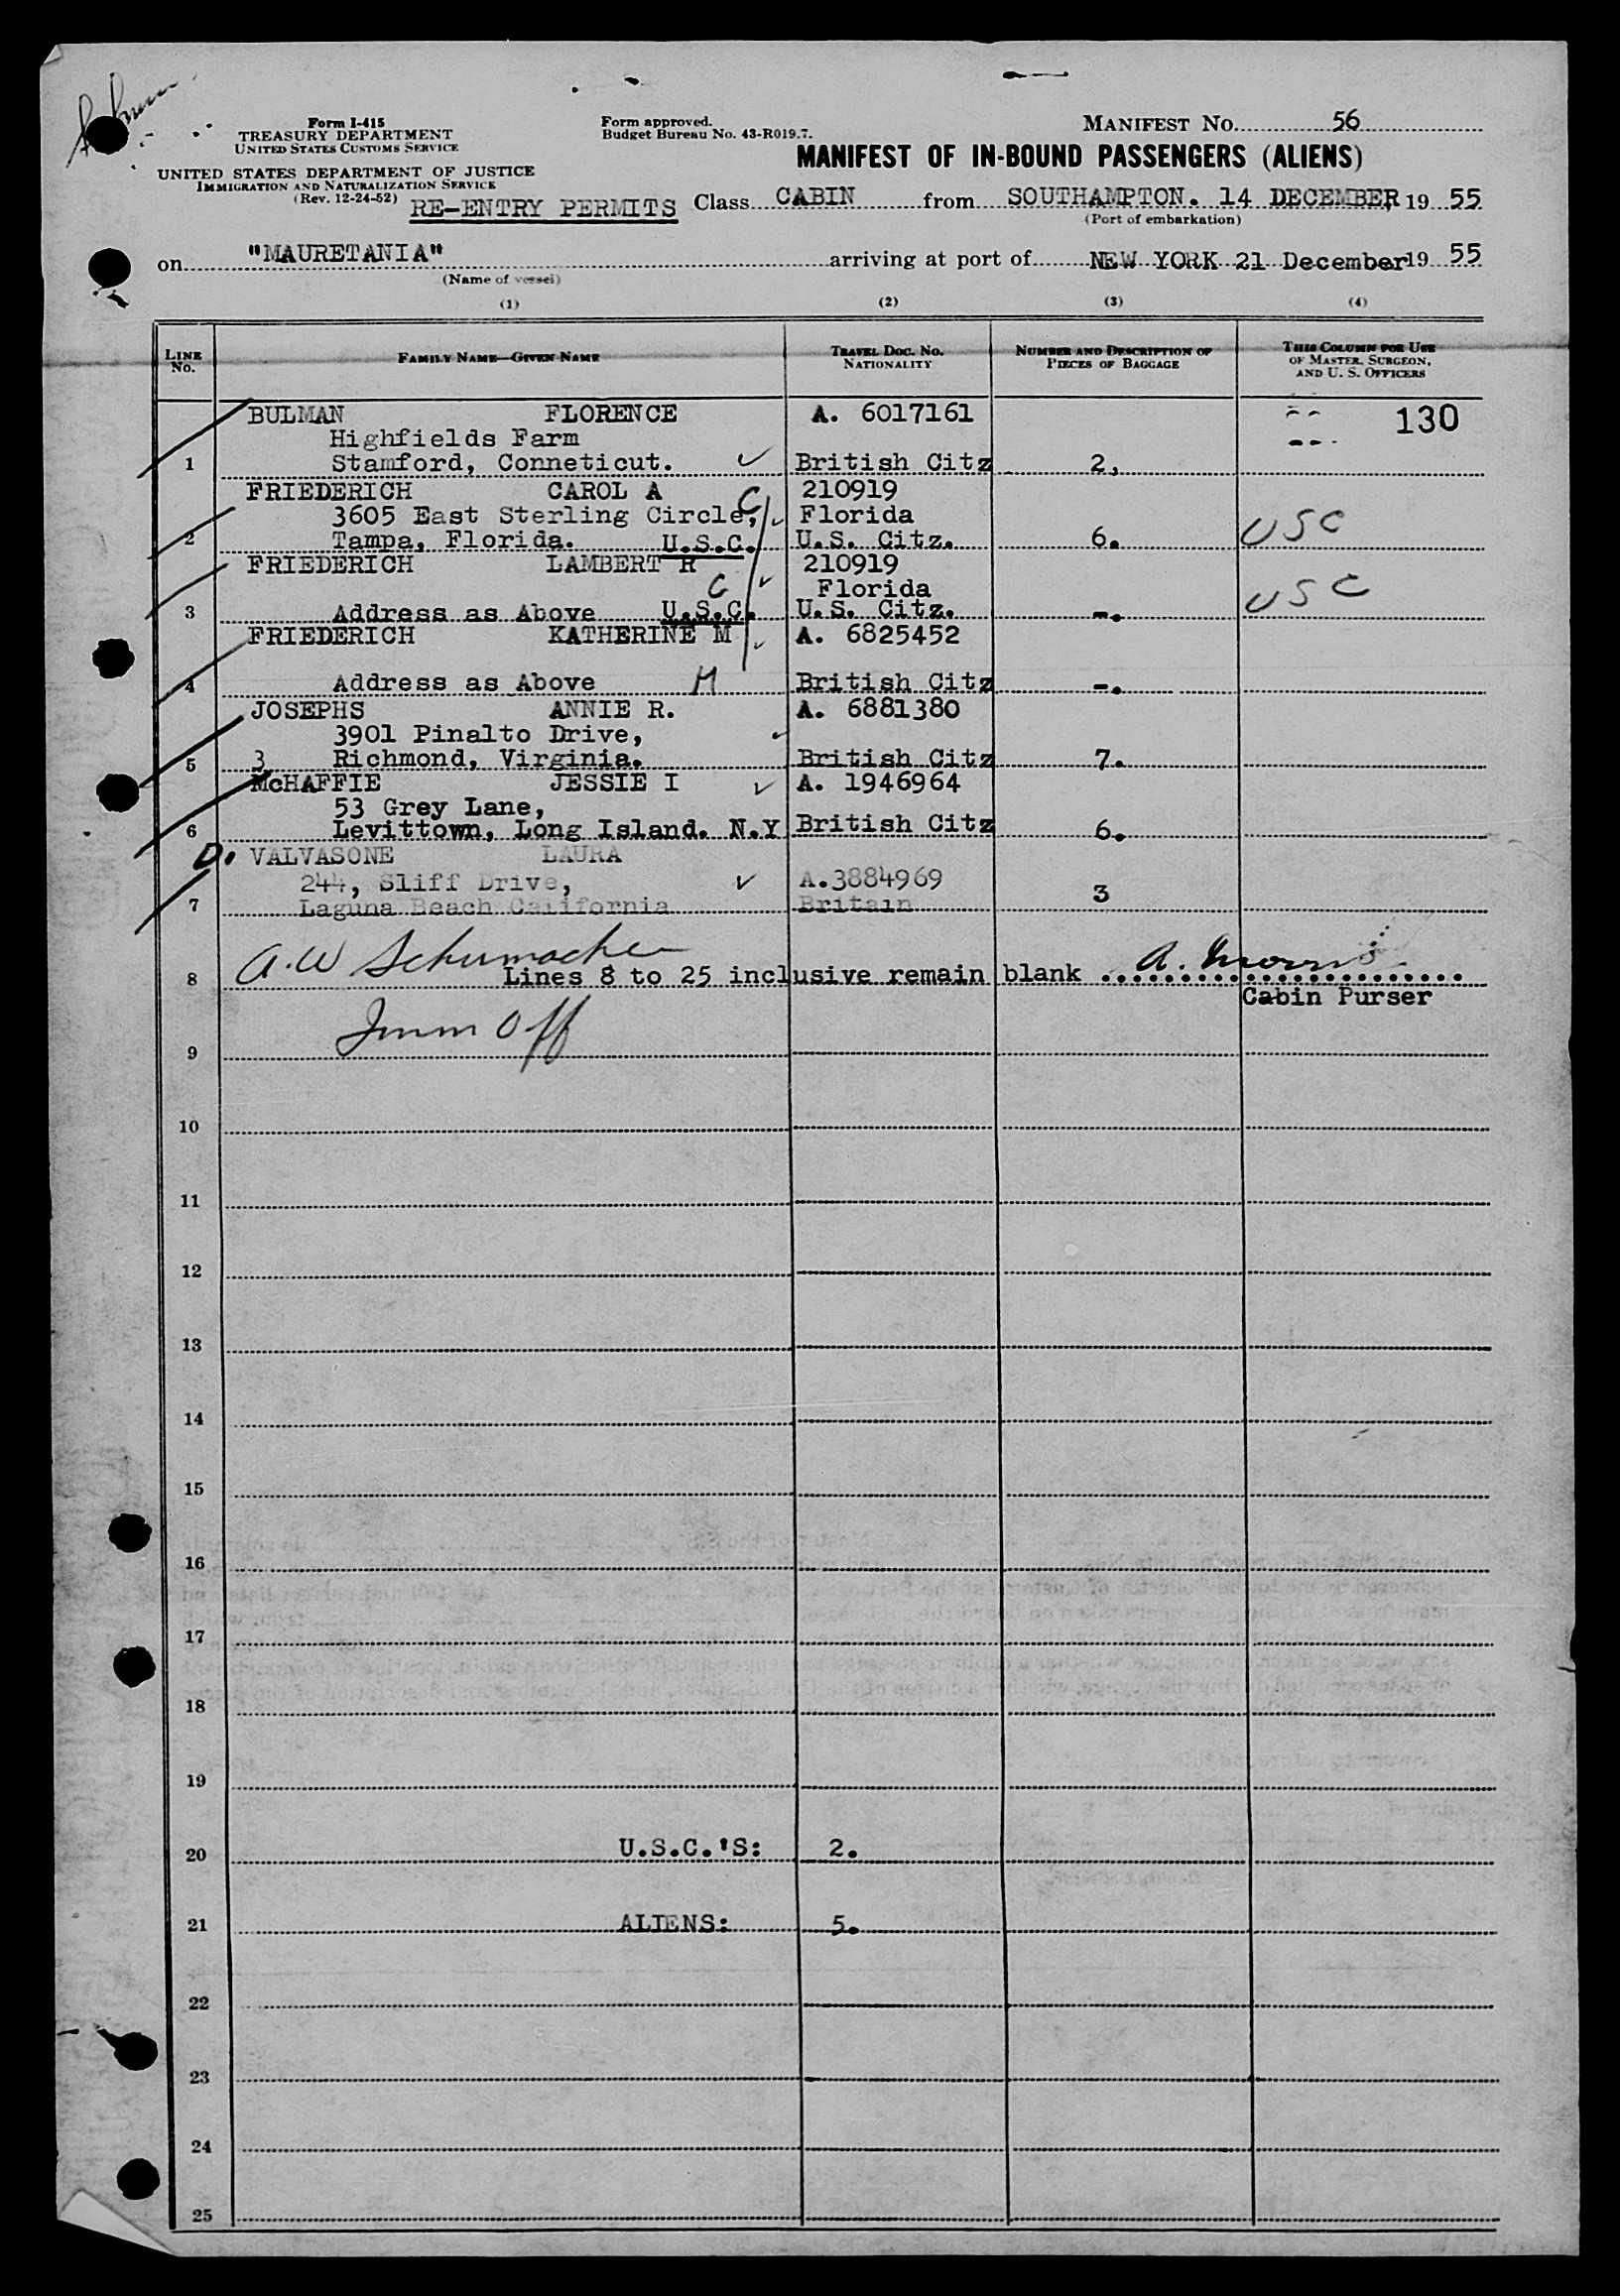 Form I-415
TREASURY DEPARTMENT
UNITED STATES CUSTOMS SERVICE
UNITED STATES DEPARTMENT OF JUSTICE
IMMIGRATION AND NATURALIZATION SERVICE
(Rev. 12-24-52)
RE-ENTRY PERMITS
Form approved.
Budget Bureau No. 43-R019.7.
MANIFEST NO. 56
MANIFEST OF IN-BOUND PASSENGERS (ALIENS)
Class CABIN from SOUTHAMPTON. 14 DECEMBER, 19 55
(Port of embarkation)
on "MAURETANIA" arriving at port of NEW YORK 21 December 19 55
(Name of vessel)
(1) (2) (3) (4)
LINE NO. FAMILY NAME—GIVEN NAME TRAVEL DOC. NO. NATIONALITY NUMBER AND DESCRIPTION OF PIECES OF BAGGAGE THIS COLUMN FOR USE OF MASTER, SURGEON, AND U. S. OFFICERS
BULMAN FLORENCE A. 6017161 130
Highfields Farm
1 Stamford, Conneticut. British Citz 2,
FRIEDERICH CAROL A C 210919
3605 East Sterling Circle, Florida USC
2 Tampa, Florida. U.S.C. U.S. Citz. 6.
FRIEDERICH LAMBERT R 210919
C Florida USC
3 Address as Above U.S.C. U.S. Citz. -.
FRIEDERICH KATHERINE M A. 6825452
4 Address as Above M British Citz -.
JOSEPHS ANNIE R. A. 6881380
3901 Pinalto Drive,
5 3 Richmond, Virginia. British Citz 7.
McHAFFIE JESSIE I A. 1946964
53 Grey Lane,
6 Levittown, Long Island. N.Y British Citz 6.
D. VALVASONE LAURA
244, Sliff Drive, A.3884969 3
7 Laguna Beach California Britain
A.W Schumacher A. Morris
8 Lines 8 to 25 inclusive remain blank
Cabin Purser
Imm Off
9
10
11
12
13
14
15
16
17
18
19
20 U.S.C.'S: 2.
21 ALIENS: 5.
22
23
24
25